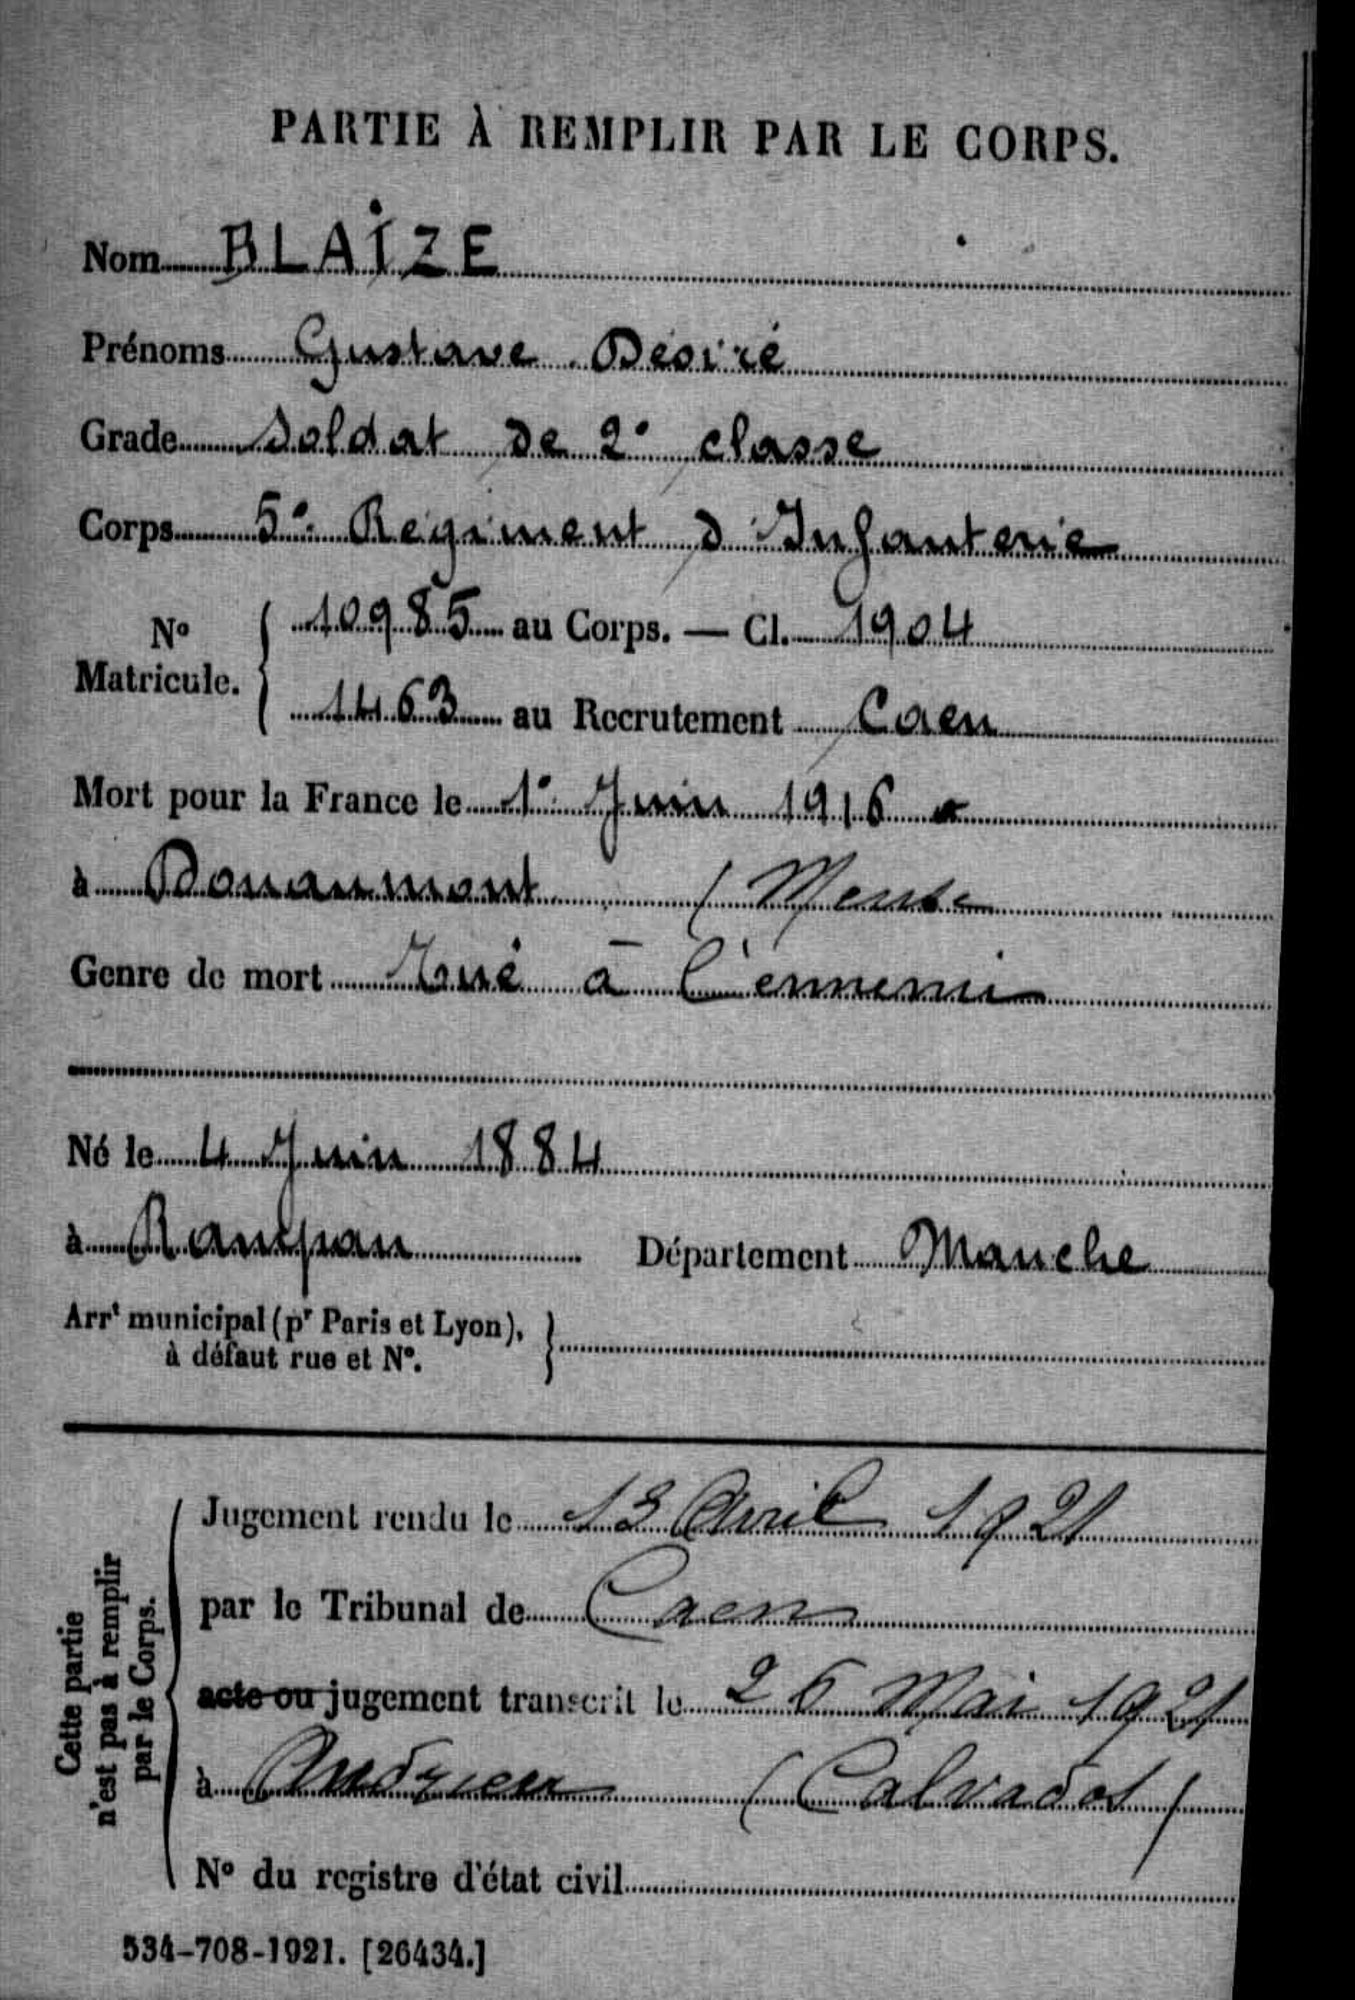 PARTIE À REMPLIR PAR LE CORPS.
Nom BLAIZE
Prénoms Gustave Désiré
Grade Soldat de 2e classe
Corps 5e Régiment d'Infanterie
No Matricule. { 10985 au Corps. — Cl. 1904
1463 au Recrutement Caen
Mort pour la France le 1e Juin 1916
à Douaumont (Meuse
Genre de mort Tué à l'ennemi
Né le 4 Juin 1884
à Rampan Département Manche
Arrt municipal (pr Paris et Lyon), à défaut rue et No. }
Cette partie n'est pas à remplir par le Corps.
Jugement rendu le 13 Avril 1921
par le Tribunal de Caen
acte ou jugement transcrit le 26 Mai 1921
à Audrieu (Calvados)
No du registre d'état civil
534-708-1921. [26434.]